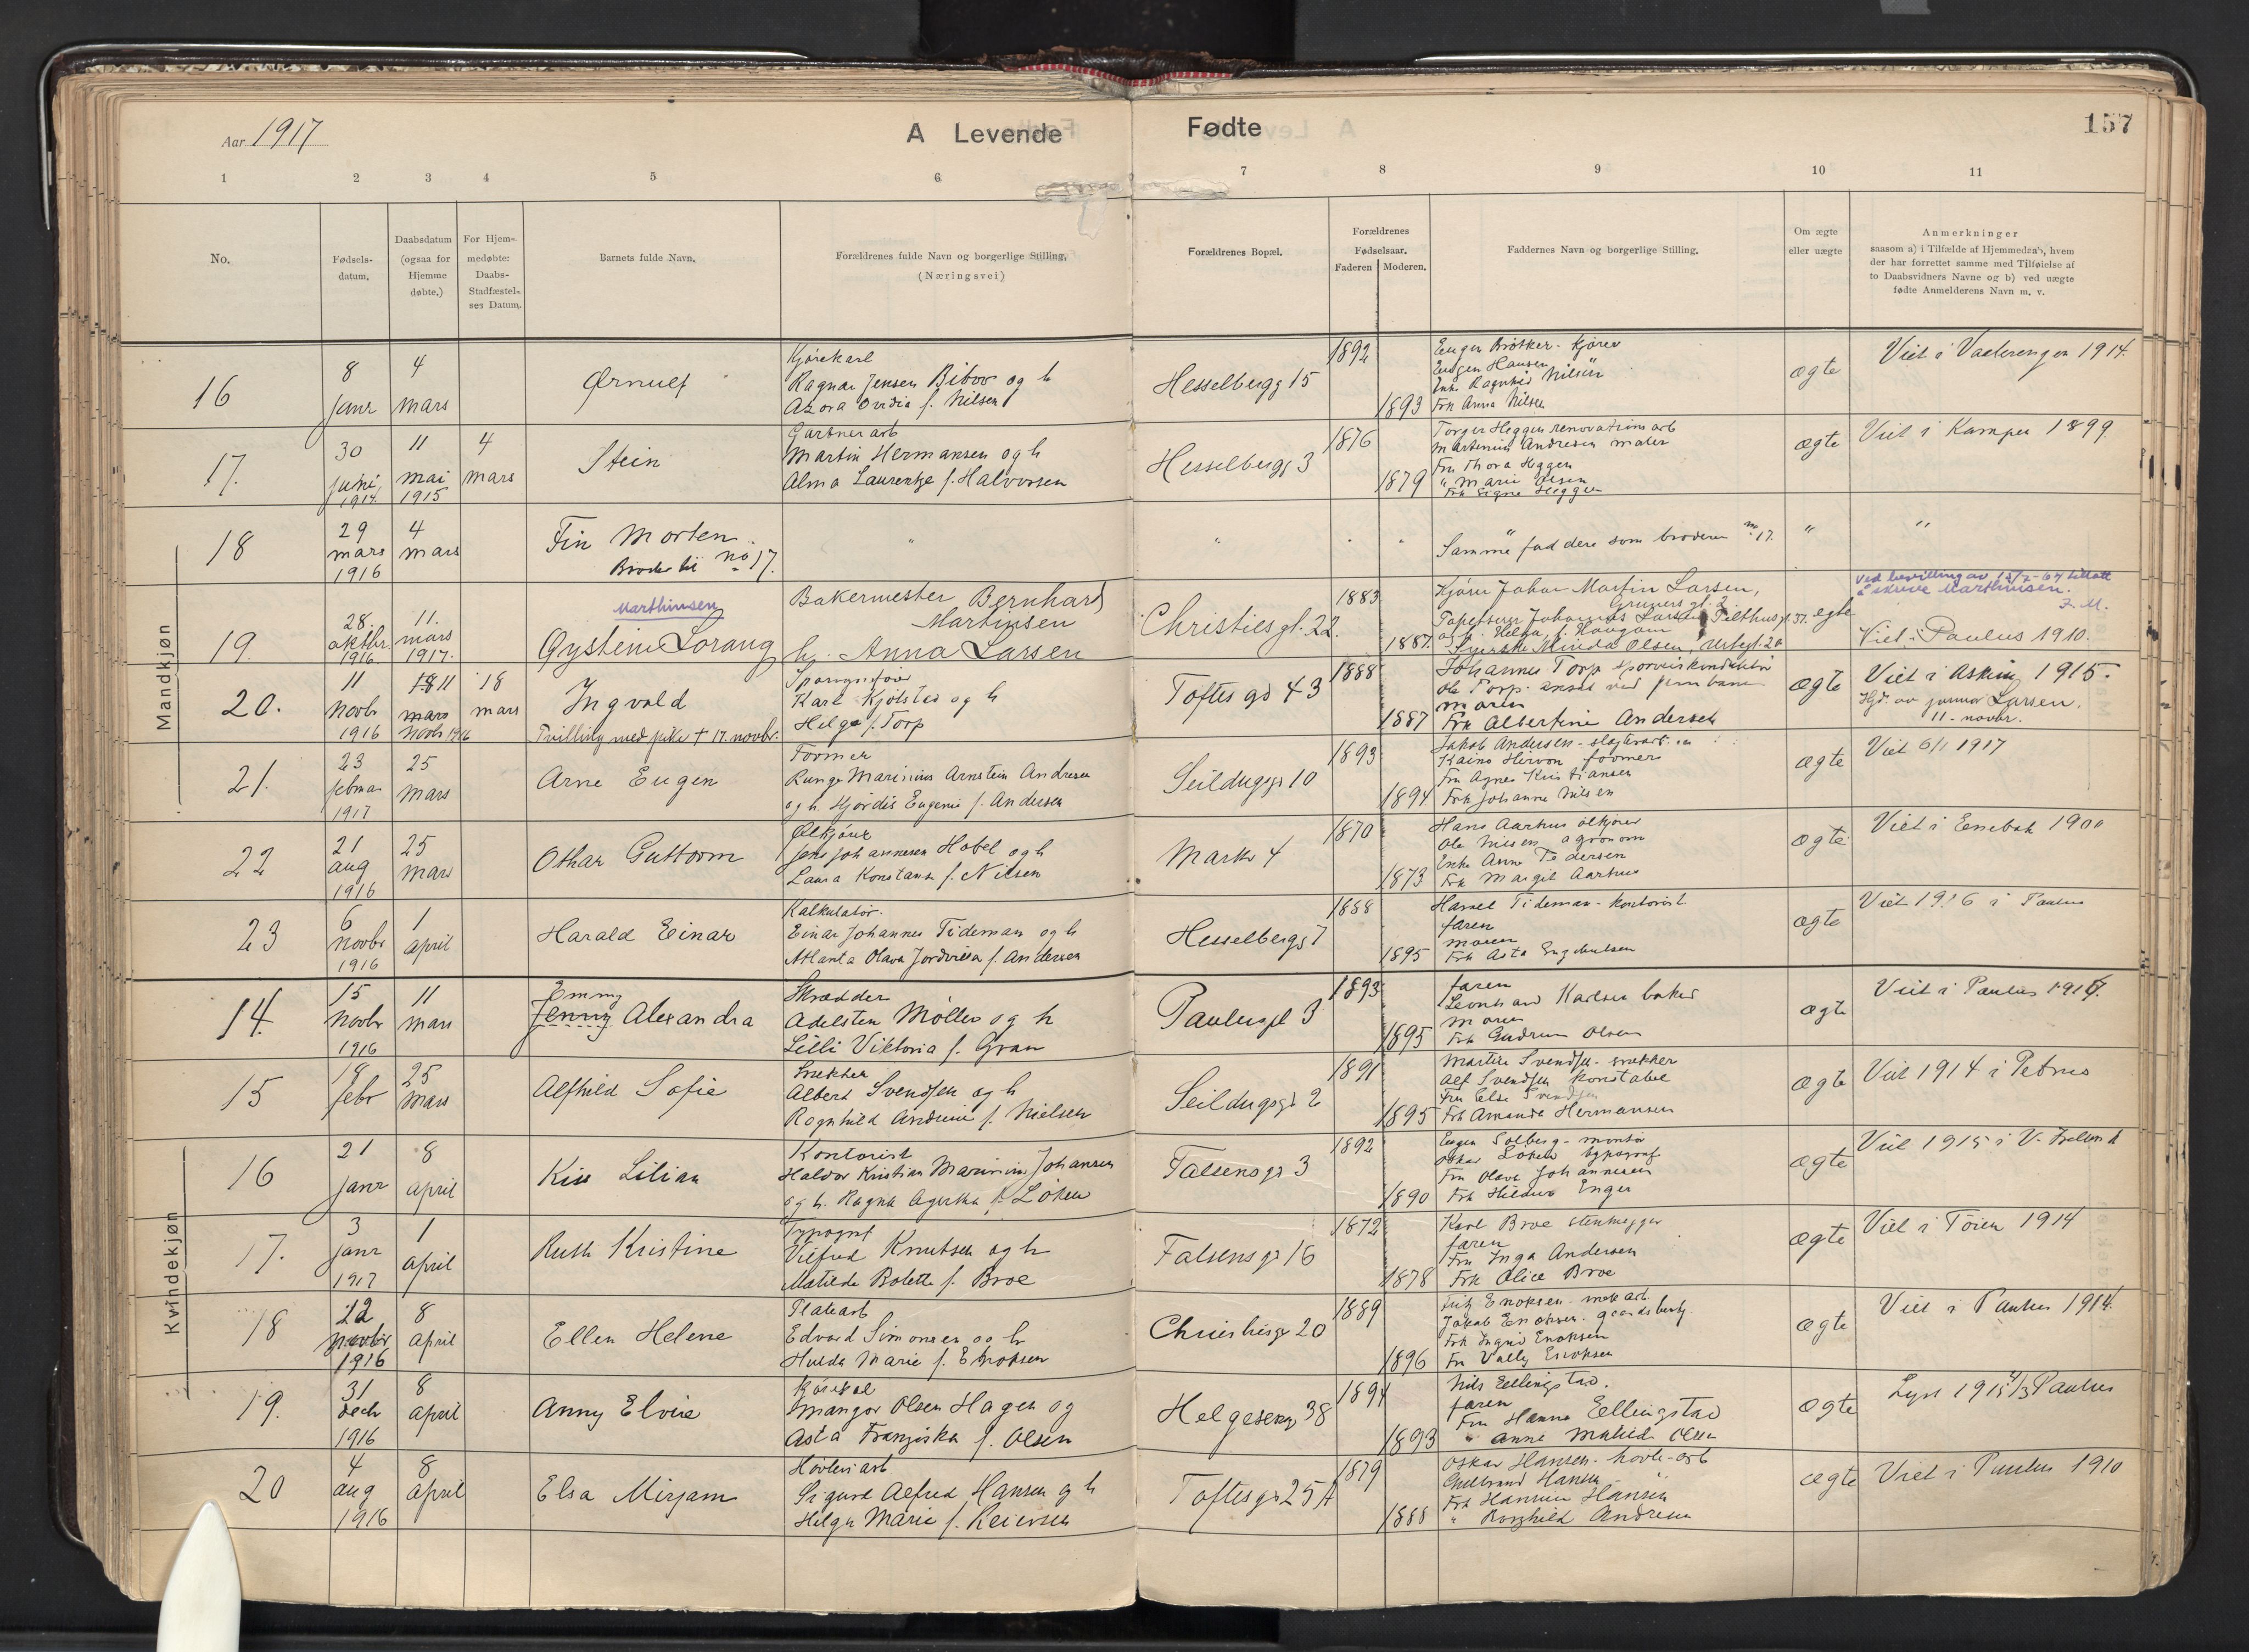 Aar 1917
A Levende
Fødte
157
1 2 3 4 5 6 7 8 9 10 11
No.
Fødsels-
datum.
Daabsdatum
(ogsaa for
Hjemme
døbte.)
For Hjem-
medøbte:
Daabs-
Stadfæstel-
ses Datum.
Barnets fulde Navn.
Forældrenes fulde Navn og borgerlige Stilling,
(Næringsvei)
Forældrenes Bopæl.
Forældrenes
Fødselsaar.
Faderen Moderen.
Faddernes Navn og borgerlige Stilling.
Om ægte
eller uægte
Anmerkninger
saasom a) i Tilfælde af Hjemmedaab, hvem
der har forrettet samme med Tilføielse af
to Daabsvidners Navne og b) ved uægte
fødte Anmelderens Navn m. v.
Mandkjøn
16
8
janr
4
mars
Ørnulf
Kjørekarl
Ragnar Jensen Bibow og h
Azora Ovidia f. Nilsen
Hesselbergg 15
1892
1893
Eugen Hansen
Enke Ragnhild Nilsen
Frk Anna Nilsen
ægte
Viet i Vaalerengen 1914.
17.
30
juni
1914.
11
mai
1915
4
mars
Stein
Gartnerarb
Martin Hermansen og h
Alma Laurentze f. Halvorsen
Hesselbergg 3
1876
1879
Torger Heggen renovationsarb
Martinius Andresen maler
Fru Thora Heggen
" Marie Olsen
Frk Signe Heggen
ægte
Viet i Kampen 1899
18
29
mars
1916
4
mars
Fin Morten
Broder til No 17.
"
"
"
"
Samme faddere som broderen nr 17.
"
"
19.
28.
oktbr.
1916.
11.
mars
1917.
Marthinsen
Øystein Lorang
Bakermester Bernhard
Martinsen
h. Anna Larsen
Christies gt. 22.
1883
1887.
Kjører Johan Martin Larsen,
Grüners gt. 2
ægte
Ved bevilling av 12/2-64 tillatt
å skrive Marthinsen.
Viet i Paulus 1910.
20.
11
Novbr
1916
11
mars
Novb 1916
18
mars
Ingvald
Tvilling med pike † 17. novbr.
Karl Kjølstad og h
Helga f. Torp
Toftes gd 43
1888
1887
Johannes Torp sporveiskonduktør
Ole Torp. ansat ved jernbanen
moren
Frk Albertine Andersen
ægte
Viet i Askim 1915.
Hjd. av jormor Larsen.
11. novbr.
21.
23
februar
1917
25
mars
Arne Eugen
Former
Runge Marinius Arnstein Andresen
og h. Hjørdis Eugenie f. Andersen
Seildugsgt 10
1893
1894
Jakob Andersen - slagterarb.
Fru Agnes Kristiansen
Frk Johanne Nilsen
ægte
Viet 6/1 1917
22
21
aug
1916
25
mars
Othar Guttorm
Ølkjører
Jens Johannesen Hobel og h
Laura Konstanse f. Nilsen
Markv 4
1870
1873
Hans Aarhus ølkjører
Ole Nilsen agronom
Enke Anne Pedersen
Frk Margit Aarhus
ægte
Viet i Enebak 1900
23
6
Novbr
1916
1
april
Harald Einar
Kalkulatør.
Einar Johannes Tideman og h
Atlanta Olava Jordvina f. Andersen
Hesselbergg 7
1888
1895
Harald Tideman - kontorist.
faren
moren
Frk Asta Engebretsen
ægte
Viet 1916 i Paulus
Kvindekjøn
14.
15
Novbr
1916
11
mars
Emmy
Jenny Alexandra
Skrædder
Adelsten Møller og h
Lilli Viktoria f. Gran
Paulus pl 3
1893
1895
faren
Leonhard Karlsen baker
moren
Frk Gudrun Olsen
ægte
Viet i Paulus 1916.
15
18
febr
25
mars
Alfhild Sofie
Snekker
Albert Svendsen og h
Ragnhild Andrine f. Nielsen
Seildugsgt 2
1891
1895
Martin Svendsen - snekker
Alf Svendsen konstabel
Fru Else Svendsen
Frk Amanda Hermansen
ægte
Viet 1914 i Petrus
16
21
janr
8
april
Kiss Lilian
Kontorist
Haldor Kristian Marinius Johansen
og h. Ragna Agathe f. Løken
Falsensgt 3
1892
1890
Eugen Solberg - montør
Oskar Løken typograf
Fru Olava Johannesen
Frk Hildur Enger
ægte
17.
3
janr
1917
1
april
Ruth Kristine
Typograf
Vilfred Knutsen og h
Matilde Bolette f. Broe
Falsensgt 16
1872
1878
Karl Broe stenhugger
faren
Fru Inga Andersen
Frk Alice Broe
ægte
Viet i Tøien 1914
18
12
Novbr
1916
8
april
Ellen Helene
Platearb
Edvard Simonsen og h
Hulda Marie f. Enoksen
Christiesgt 20
1889
1896
Fritz Enoksen - mek arb.
Jakob Enoksen. gaardsbest.
Frk Ingrid Enoksen
Fru Vally Enoksen
ægte
Viet i Paulus 1914.
19.
31
decb
1916
8
april
Anny Elvire
Mangor Olsen Hagen og
Asta Franziska f. Olsen
Helgesensg 38
1894
1893
Nils Ellingstad.
faren
Fru Hanna Ellingstad
" Anne Mathilde Olsen
ægte
Lyst 1915 4/3 Paulus
20
4
aug
1916
8
april
Elsa Mirjam
Høvleriarb
Sigurd Alfred Hansen og h
Helga Marie f. Reiersen
Toftesgt 25 A
1879
1888
Oskar Hansen - høvleriarb
Gulbrand Hansen - "
Frk Hansine Hansen
" Borghild Andresen
ægte
Viet i Paulus 1910